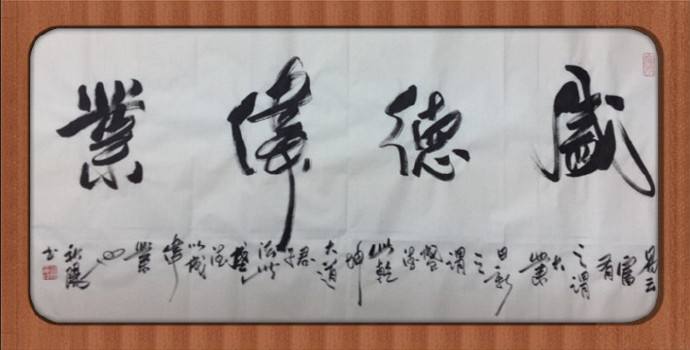 盛德偉業
易云富有之謂大業日新之謂盛德此乾坤大道君子法此盛德以成偉業也